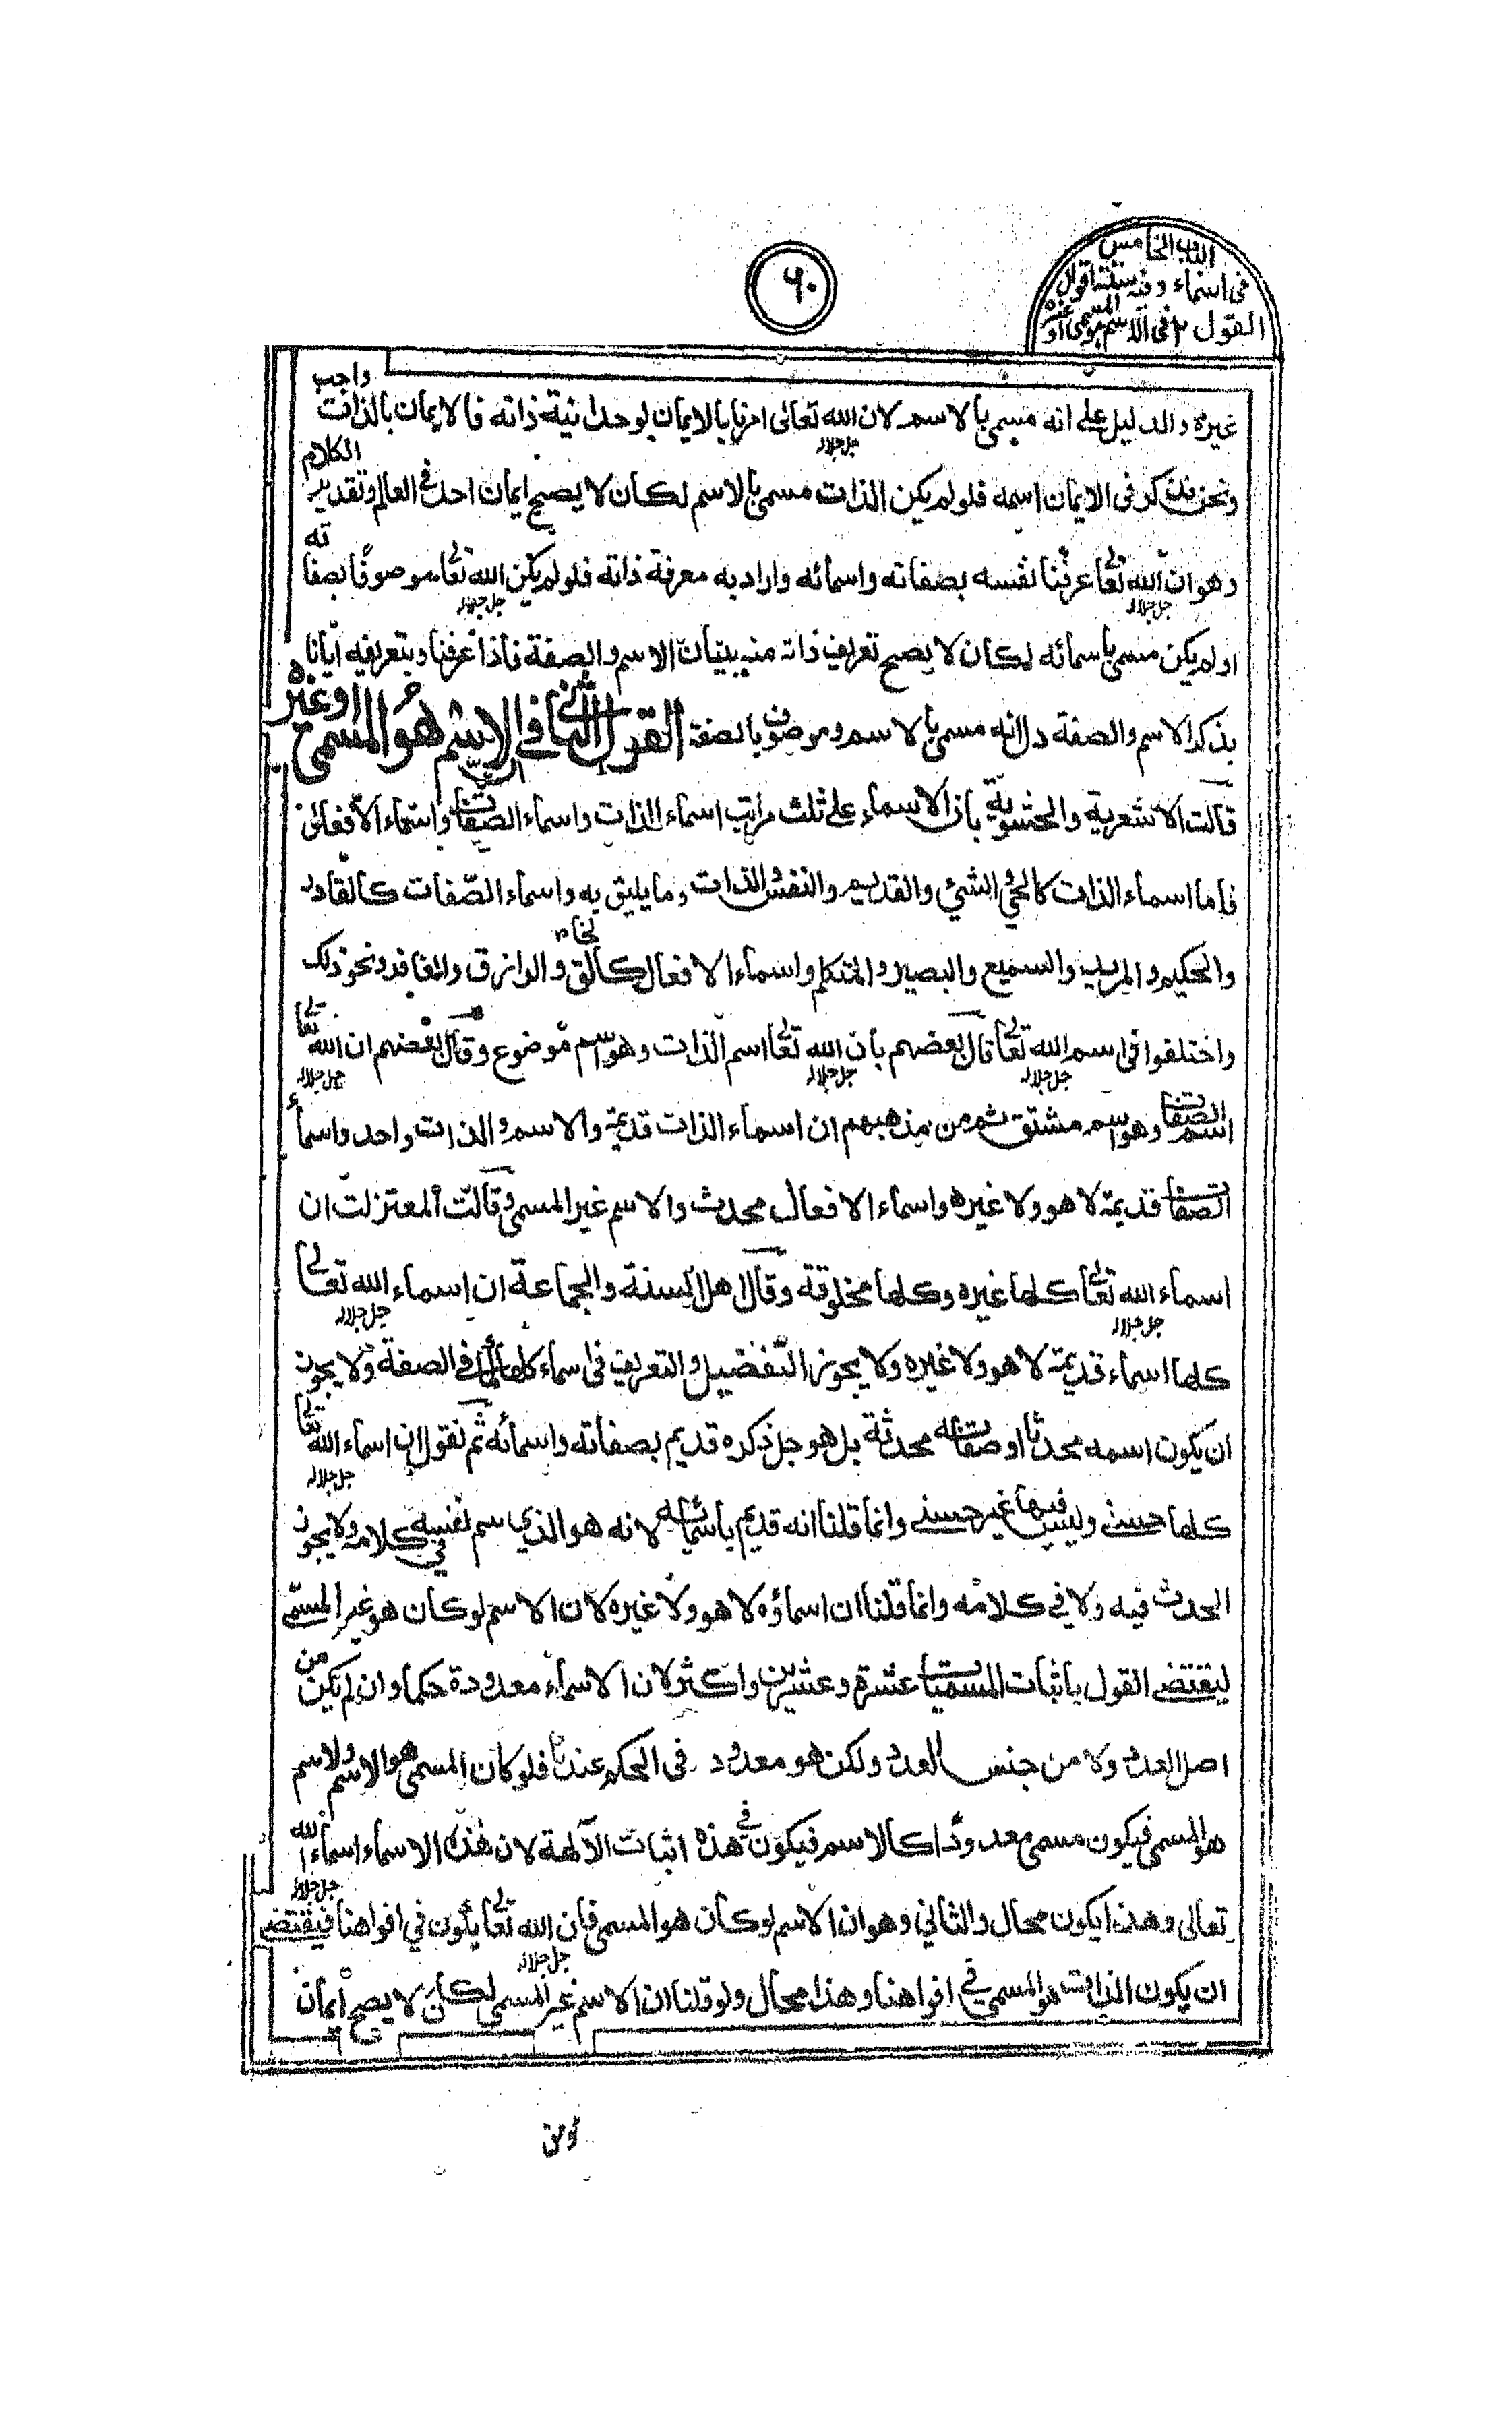 الباب الخامس
في اسماء وفيه ستة اقوال
القول ٢ في الاسم هو المسمى او غيره
٦٠
غيره والدليل على انه مسمى بالاسم لان الله تعالى جل جلاله امرنا بالايمان بوحدانية ذاته فالايمان بالذات واجب
ونحن نذكر في الايمان اسمه فلو لم يكن الذات مسمى بالاسم لكان لا يصح ايمان احد في العالم وتقدير الكلام
وهو ان الله تعالى جل جلاله عرفنا نفسه بصفاته واسمائه واراد به معرفة ذاته فلو لم يكن الله تعالى جل جلاله موصوفا بصفاته
او لم يكن مسمى باسمائه لكان لا يصح تعريف ذاته منه بيان الاسم والصفة فاذا عرفنا وبتعريفه ايانا
بذكر الاسم والصفة دل انه مسمى بالاسم وموصوف بالصفة القول الثاني في الاسم هو المسمى او غيره
قالت الاشعرية والحشوية بان الاسماء على ثلث مراتب اسماء الذات واسماء الصفات واسماء الافعال
فاما اسماء الذات كالحي والشيء والقديم والنفس والذات وما يليق به واسماء الصفات كالقادر
والحكيم والمريد والسميع والبصير والمتكلم واسماء الافعال كالخالق والرازق والغافر ونحو ذلك
واختلفوا في اسم الله تعالى جل جلاله قال بعضهم بان الله تعالى جل جلاله اسم الذات وهو اسم موضوع وقال بعضهم ان الله تعالى جل جلاله
اسم الصفات وهو اسم مشتق ثم من مذهبهم ان اسماء الذات قديمة والاسم والذات واحد واسماء
الصفات قديمة لا هو ولا غيره واسماء الافعال محدث والاسم غير المسمى وقالت المعتزلة ان
اسماء الله تعالى جل جلاله كلها غيره وكلها مخلوقة وقال اهل السنة والجماعة ان اسماء الله تعالى جل جلاله
كلها اسماء قديمة لا هو ولا غيره ولا يجوز التفضيل والتعريف في اسماء كلها في الصفة ولا يجوز
ان يكون اسمه محدثا او صفاته محدثة بل هو جل ذكره قديم بصفاته واسمائه ثم نقول ان اسماء الله تعالى جل جلاله
كلها حسنى وليس فيها غير حسنى وانما قلنا انه قديم باسمائه لانه هو الذي سم نفسه في كلامه ولا يجوز
الحدث فيه ولا في كلامه وانما قلنا ان اسماؤه لا هو ولا غيره لان الاسم لو كان هو غير المسمى
ليقتضي القول باثبات المسميات عشرة وعشرين واكثر لان الاسماء معدودة حكما وان لم تكن من
اصل العدد ولا من جنس العدد ولكن هو معدود في الحكم عندنا فلو كان المسمى هو الاسم ولاسم
هو المسمى فيكون مسمى معدودًا كالاسم فيكون في هذه اثبات الآلهة لان هذه الاسماء اسماء الله
تعالى جل جلاله وهذا يكون محال والثاني وهو ان الاسم لو كان هو المسمى فان الله تعالى جل جلاله يكون في افواهنا فيقتضي
ان يكون الذات هو المسمى في افواهنا وهذا محال ولو قلنا ان الاسم غير المسمى لكان لا يصح ايمان